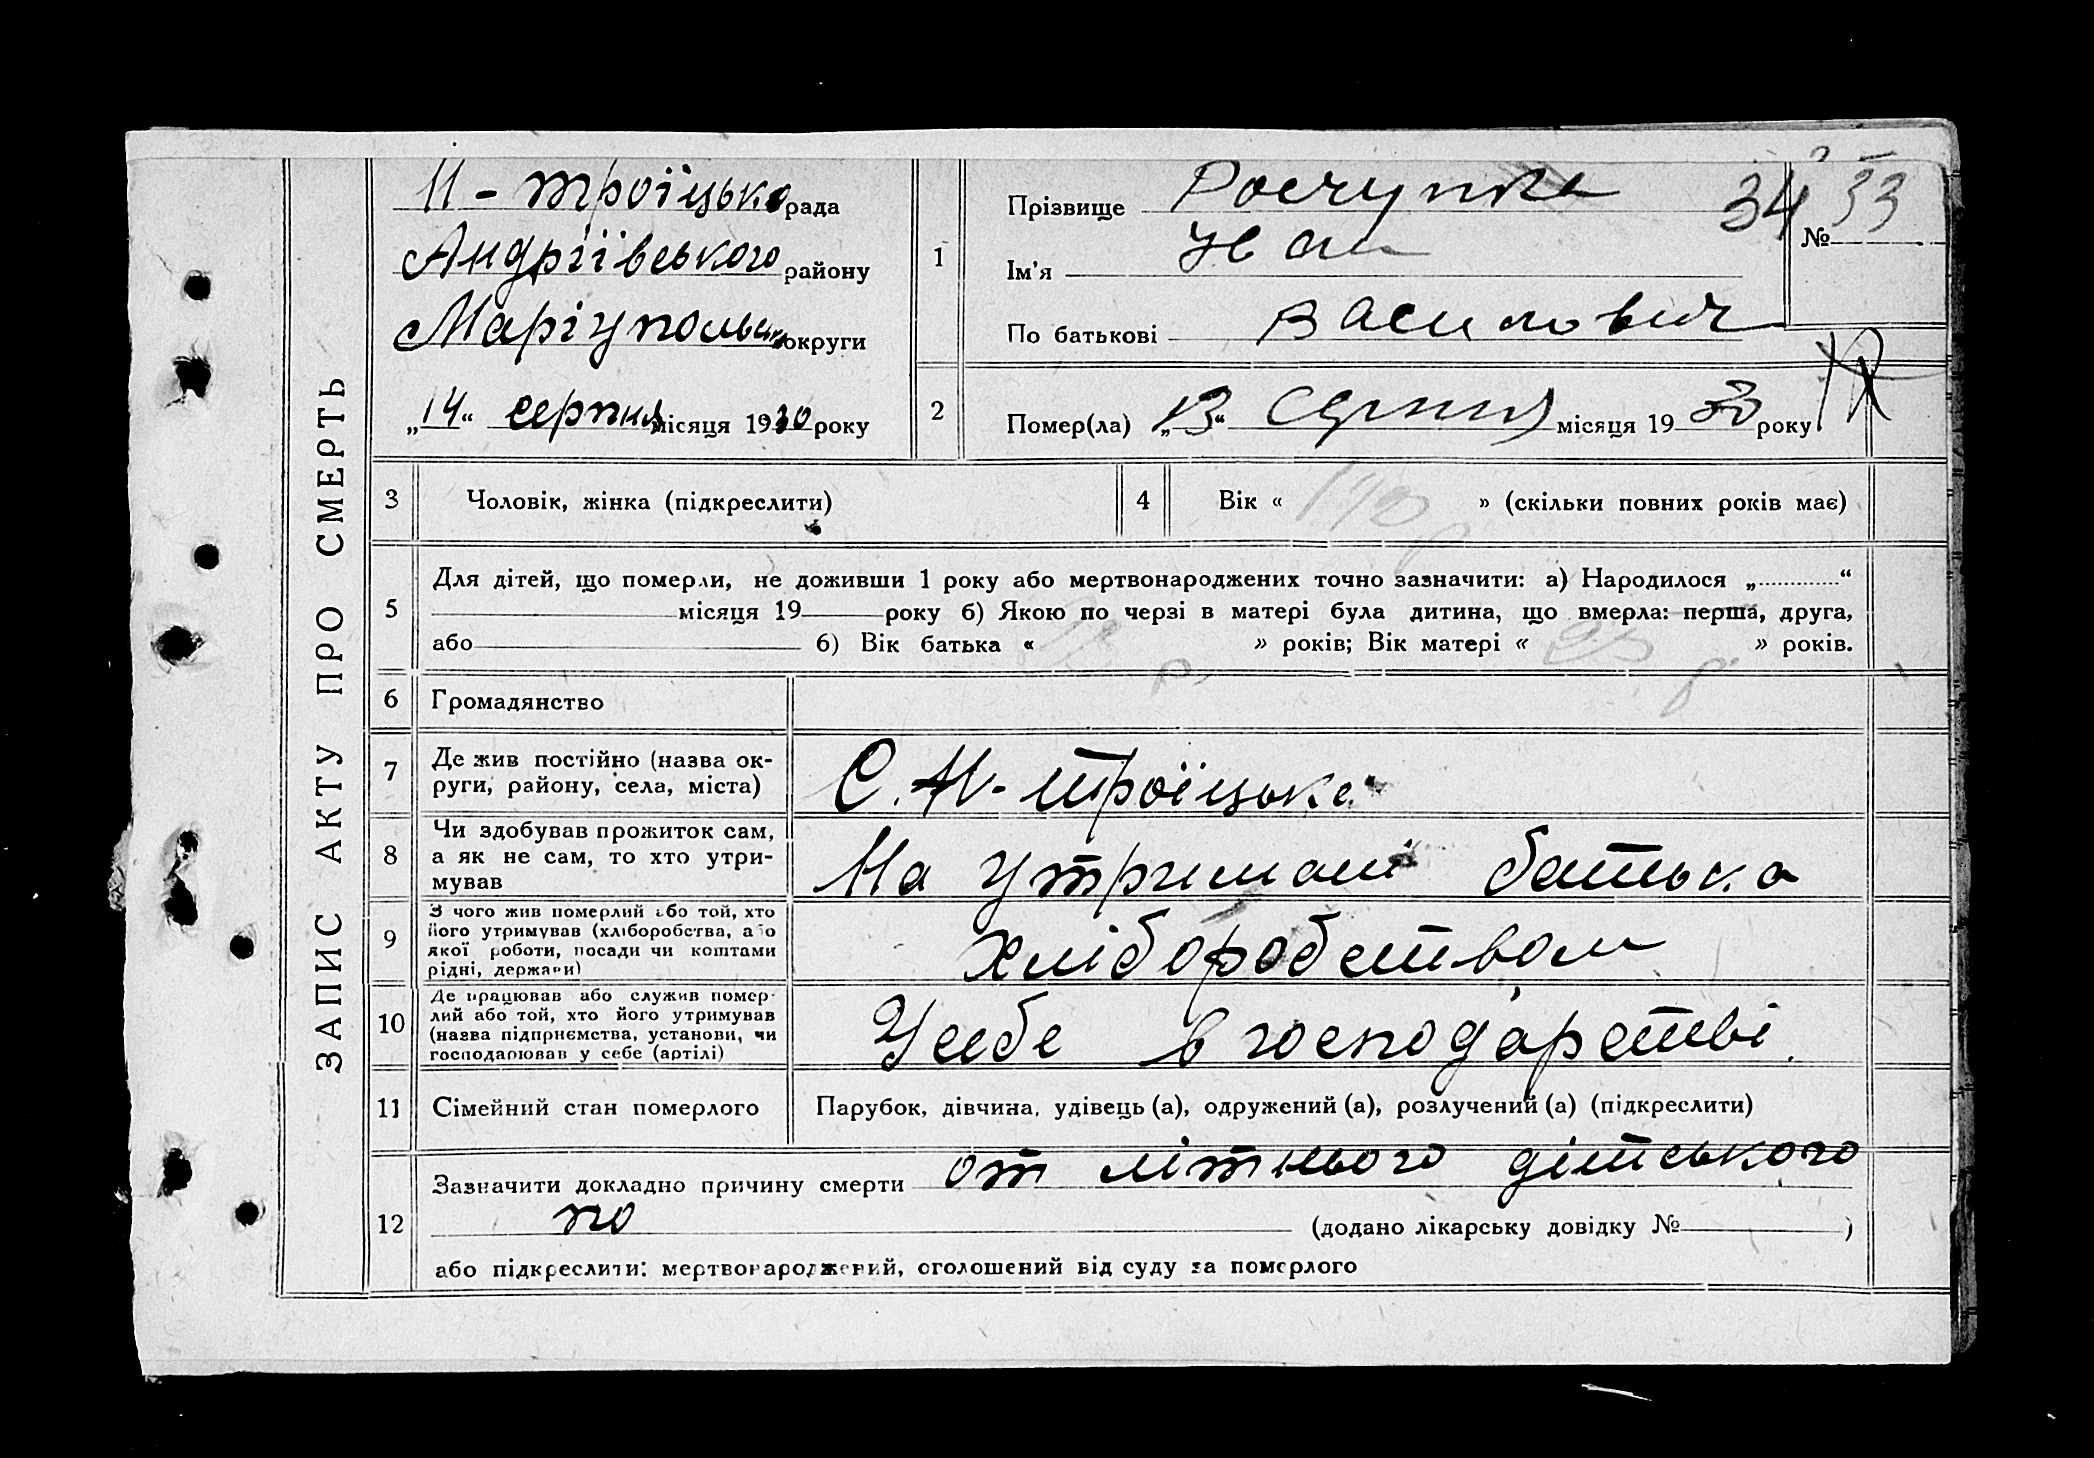 ЗАПИС АКТУ ПРО СМЕРТЬ
Н-Троїцько рада
Андріївського району
Маріупольськ округи
„14“ серпня місяця 1930 року
1
Прізвище Росчупка
Ім'я Иван
По батькові Василович
34 33
№
2
Помер(ла) „13“ серпня місяця 1930 року
3
Чоловік, жінка (підкреслити)
4
Вік « » (скільки повних років має)
5
Для дітей, що померли, не доживши 1 року або мертвонароджених точно зазначити: а) Народилося „ “
місяця 19 року б) Якою по черзі в матері була дитина, що вмерла: перша, друга,
або б) Вік батька « » років; Вік матері « » років.
6
Громадянство
7
Де жив постійно (назва ок-
руги, району, села, міста)
С. Н-Троїцьке
8
Чи здобував прожиток сам,
а як не сам, то хто утри-
мував
На утримані батька
9
З чого жив померлий або той, хто
його утримував (хліборобства, або
якої роботи, посади чи коштами
рідні, держави)
хліборобством
10
Де працював або служив помер-
лий або той, хто його утримував
(назва підприємства, установи, чи
господарював у себе (артілі)
У себе в господарстві.
11
Сімейний стан померлого
Парубок, дівчина, удівець (а), одружений (а), розлучений (а) (підкреслити)
12
Зазначити докладно причину смерти от літнього дітського
по (додано лікарську довідку № )
або підкреслити: мертвонароджений, оголошений від суду за померлого